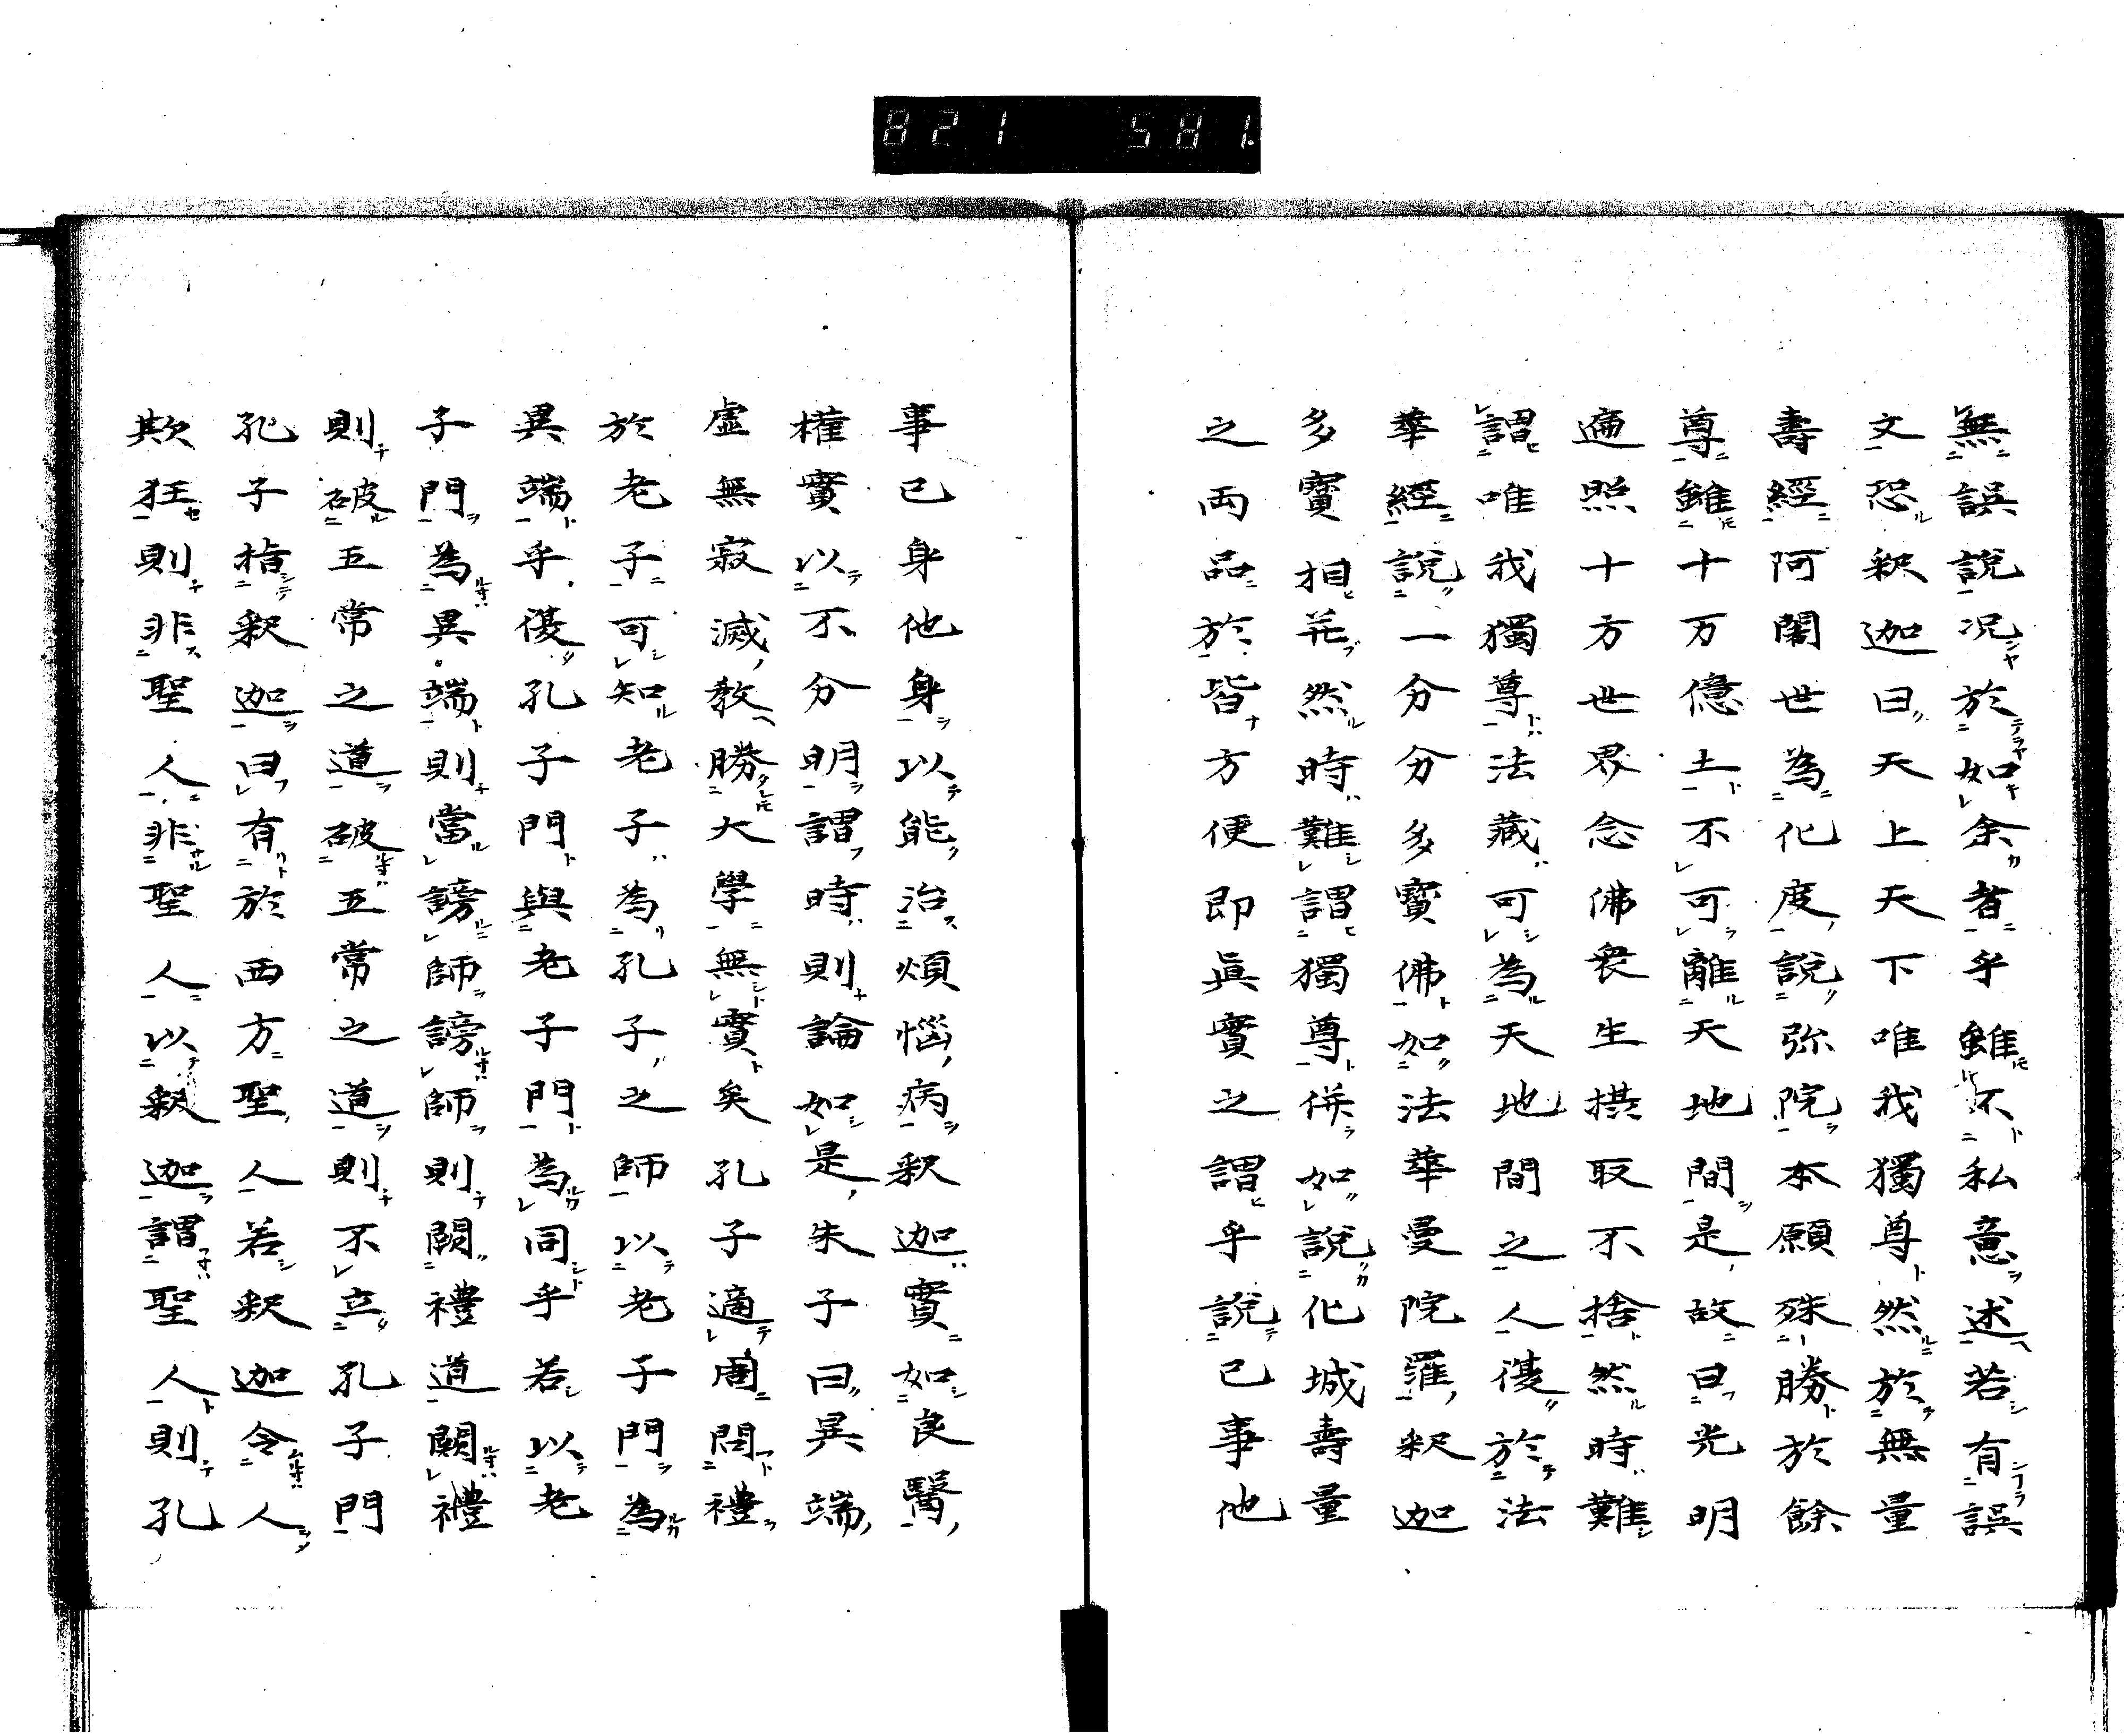 821 581.
無誤說況於如余者乎雖不私意述若有誤
文恐釈迦曰天上天下唯我獨尊然於無量
壽經阿闍世為化度說弥陀本願殊勝於餘
尊雖十万億土不可離天地間是故曰光明
遍照十方世界念佛衆生摂取不捨然時難
謂唯我獨尊法藏可為天地間之人復於法
華經說一分分多寶佛如法華曼陀羅釈迦
多寶相並然時難謂獨尊併如說化城壽量
之両品於皆方便即眞實之謂乎說已事他
事已身他身以能治煩惱病釈迦實如良醫
權實以不分明謂時則論如是朱子曰異端
虛無寂滅教勝大學無實矣孔子適周問禮
於老子可知老子為孔子之師以老子門為
異端乎復孔子門與老子門為同乎若以老
子門為異端則當謗師謗師則闕禮道闕禮
則破五常之道破五常之道則不立孔子門
孔子指釈迦曰有於西方聖人若釈迦令人
欺狂則非聖人非聖人以釈迦謂聖人則孔